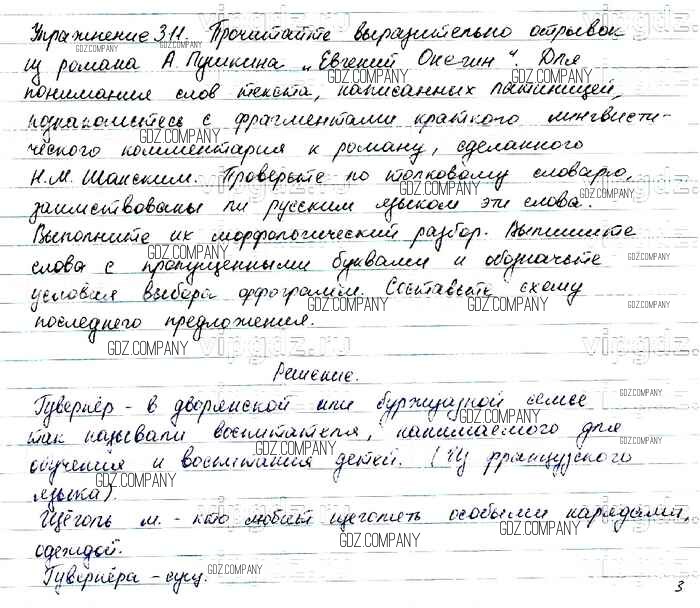 Упражнение 311. Прочитайте выразительно отрывок
из романа А. Пушкина „Евгений Онегин“. Для
понимания слов текста, написанных латиницей,
познакомьтесь с фрагментами краткого лингвисти-
ческого комментария к роману, сделанного
Н.М. Шанским. Проверьте по толковому словарю,
заимствованы ли русским языком эти слова.
Выполните их морфологический разбор. Выпишите
слова с пропущенными буквами и обозначьте
условия выбора орфограмм. Составьте схему
последнего предложения.
Решение.
Гувернёр - в дворянской или буржуазной семье
так называли воспитателя, нанимаемого для
обучения и воспитания детей. (Из французского
языка).
Щёголь м. - кто любит щеголять особыми нарядами,
одеждой.
Гувернёра - сущ.
3
GDZ.COMPANY
vipgdz.ru